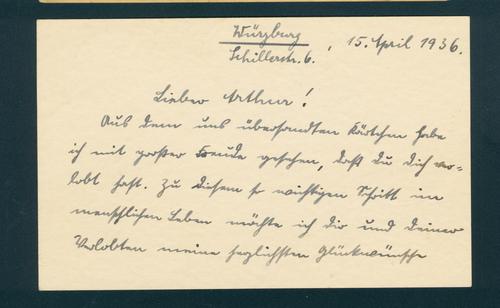 Würzburg
Schillerstr. 6. , 15. April 1936.
Lieber Arthur!
Aus dem uns übersandten Kärtchen habe
ich mit großer Freude gesehen, daß du dich ver-
lobt hast. Zu diesem so wichtigen Schritt im
menschlichen Leben möchte ich dir und deiner
Verlobten meine herzlichsten Glückwünsche